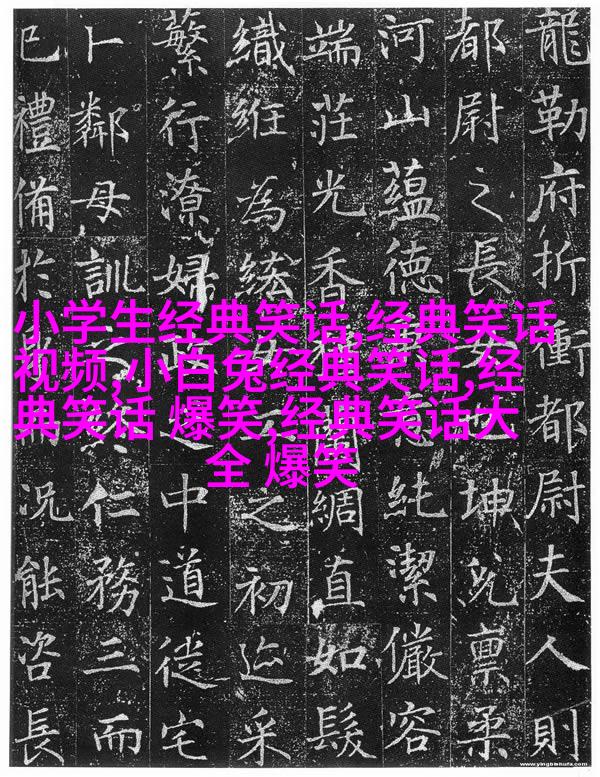 龍勒府折衝都尉夫人則
都尉之長女也坤皃稟柔
河山蘊德純潔儼容
端莊光香綢直如髮
織紝為之初迩采
蘩行潦婦政中道徙宅
卜鄰母訓仁務三而
已禮備於況能咨長
小学生经典笑话,经典笑话
视频,小白兔经典笑话,经
典笑话 爆笑,经典笑话大
全 爆笑
www.yingbishufa.com